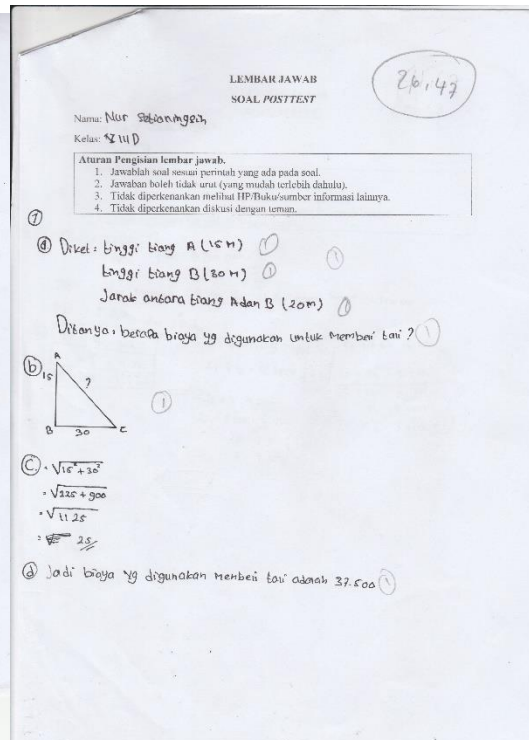 LEMBAR JAWAB
26,47
SOAL POSTTEST
Nama: Nur Setianingsih
Kelas: VIII D
Aturan Pengisian lembar jawab.
1. Jawablah soal sesuai perintah yang ada pada soal.
2. Jawaban boleh tidak urut (yang mudah terlebih dahulu).
3. Tidak diperkenankan melihat HP/Buku/sumber informasi lainnya.
4. Tidak diperkenankan diskusi dengan teman.
1
a Diket : tinggi tiang A (15 M) 1
tinggi tiang B (30 M) 1 1
Jarak antara tiang A dan B (20 m) 1
Ditanya : berapa biaya yg digunakan untuk memberi tari ? 1
A
b 15 ? 1
B 30 C
C. = √15² + 30²
= √225 + 900
= √1125
= 25
d Jadi biaya yg digunakan memberi tari adalah 37.500 1